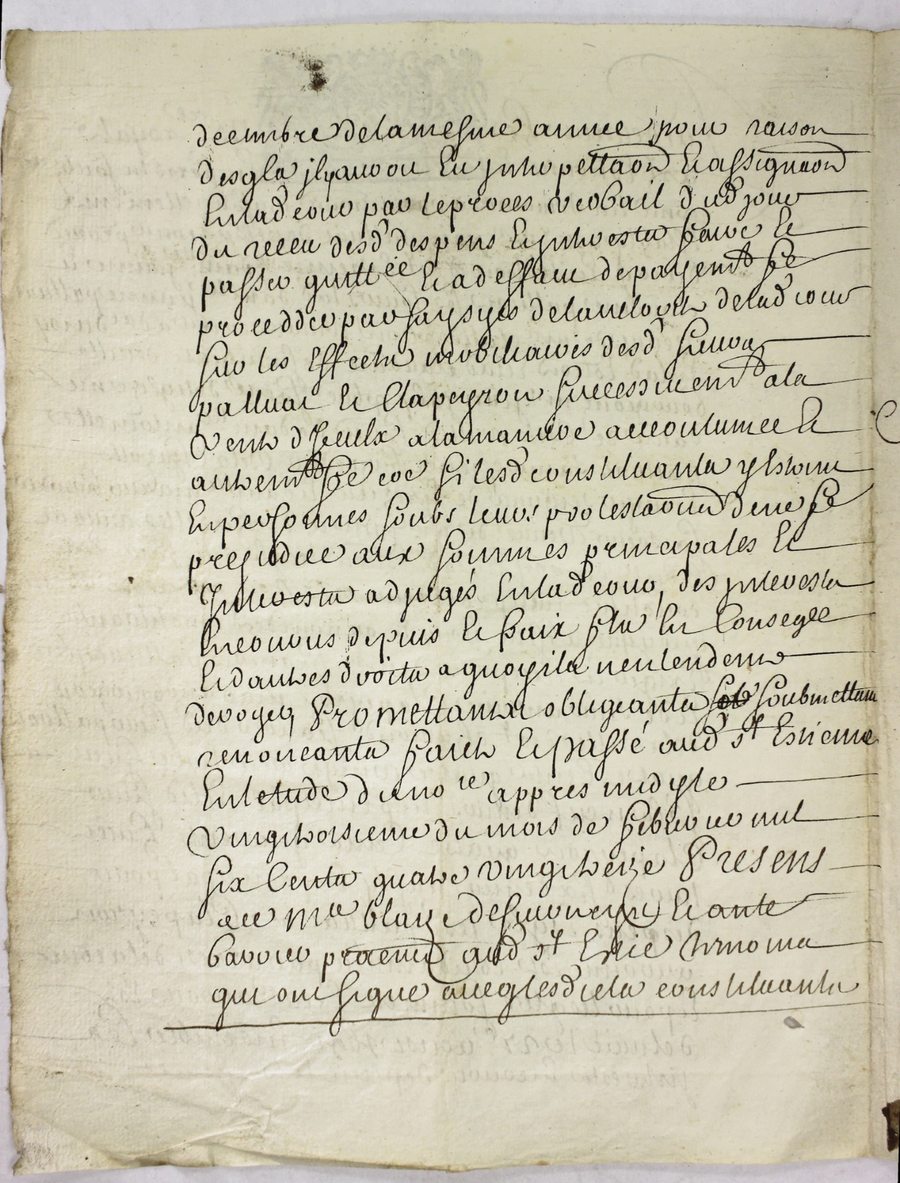 decembre delamesme année pour raison
desqlz jlyauoit Eu jnterpellaõn Et assignaõn
Enlad cour par leproces verbail dud jour
du receu desd despens Et jnterestz faire Et
passer quittce Et a deffaut de payemt Se
procedder par saysyes delauctorite delad cour
sur les Effectz mobiliaires desd
palluat Et Clapeyron successivemt ala
vente dJceulx alamaniere accoutumee Et
autremt Se coe silesd constituantz y estoint
Enpersonnes soubs leurs protestaõns dene se
prejudice aux sommes principales Et
Jnterestz adjugés Enlad cour, des jnterestz
Encourus depuis Et fraix filz En Conseqce
Et dautres droitz aquoyilz nentendent
deroger, Promettantz obligeantz soubmettans
renonceantz faict Et passé aud st Estienne
Enletude dunore appres midy le
vingtroisieme du mois de febvrier mil
six Centz quatre vingttreize Presens
ace Mre blaize Et ante
baroier praenct aud st Enne tesmoins
qui ont signe aueq lesd constituantz